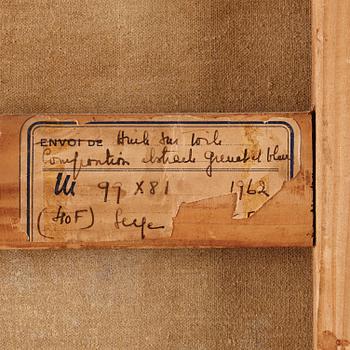 ENVOI DE Huile sur toile
Composition abstraite grenat et bleu
99 X 81 1962
(40F)